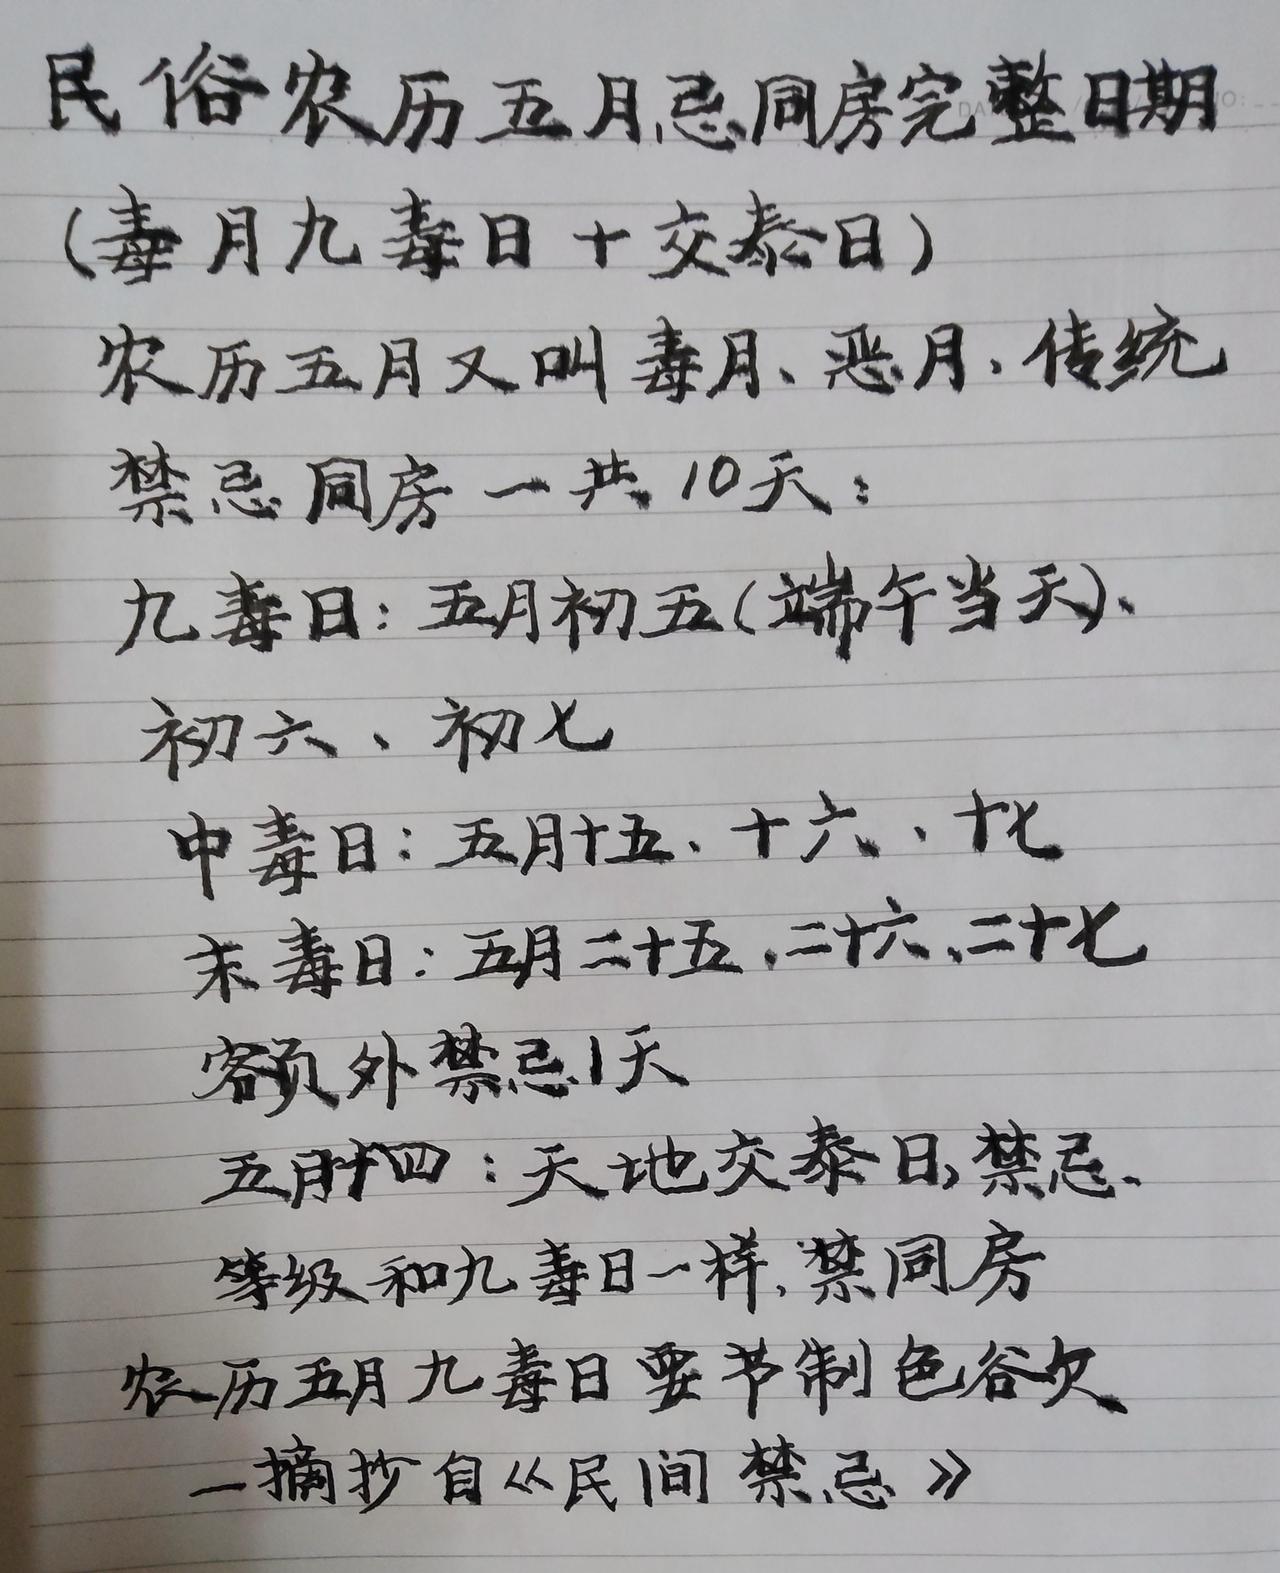 民俗农历五月忌同房完整日期
(毒月九毒日十交泰日)
农历五月又叫毒月、恶月、传统
禁忌同房一共10天:
九毒日:五月初五(端午当天)、
初六、初七
中毒日:五月十五、十六、十七
末毒日:五月二十五、二十六、二十七
额外禁忌1天
五月十四:天地交泰日,禁忌、
等级和九毒日一样,禁同房
农历五月九毒日要节制色谷欠
一摘抄自《民间禁忌》